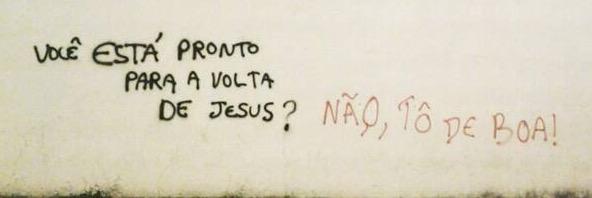 VOCÊ ESTÁ PRONTO
PARA A VOLTA
DE JESUS?
NÃO, TÔ DE BOA!